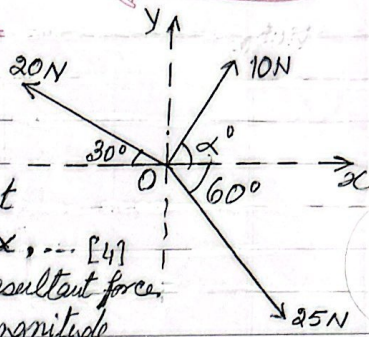 y
20N
10N
30°
α°
O
60°
x
t
x, ... [4]
esultant force,
agnitude
25N